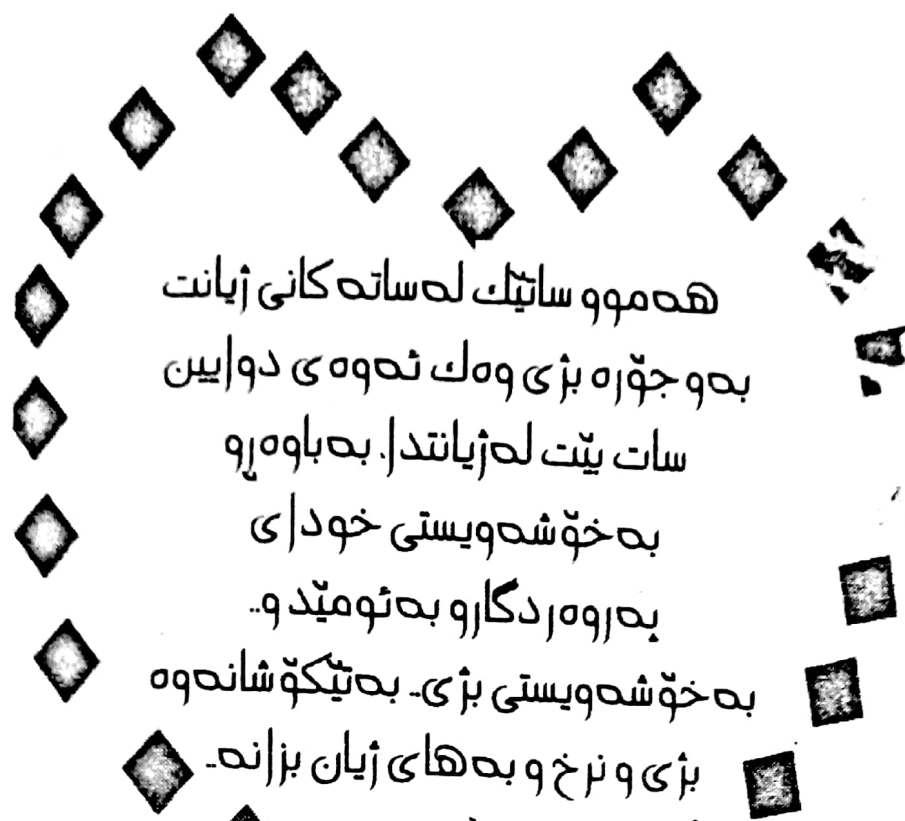 هەموو ساتێك لەساتەكانی ژیانت
بەو جۆرە بژی وەك ئەوەی دوایین
سات بێت لەژیانتدا. بەباوەڕو
بەخۆشەویستی خودای
پەروەردگارو بەئومێد و..
بەخۆشەویستی بژی.. بەتێكۆشانەوە
بژی و نرخ و بەهای ژیان بزانە..